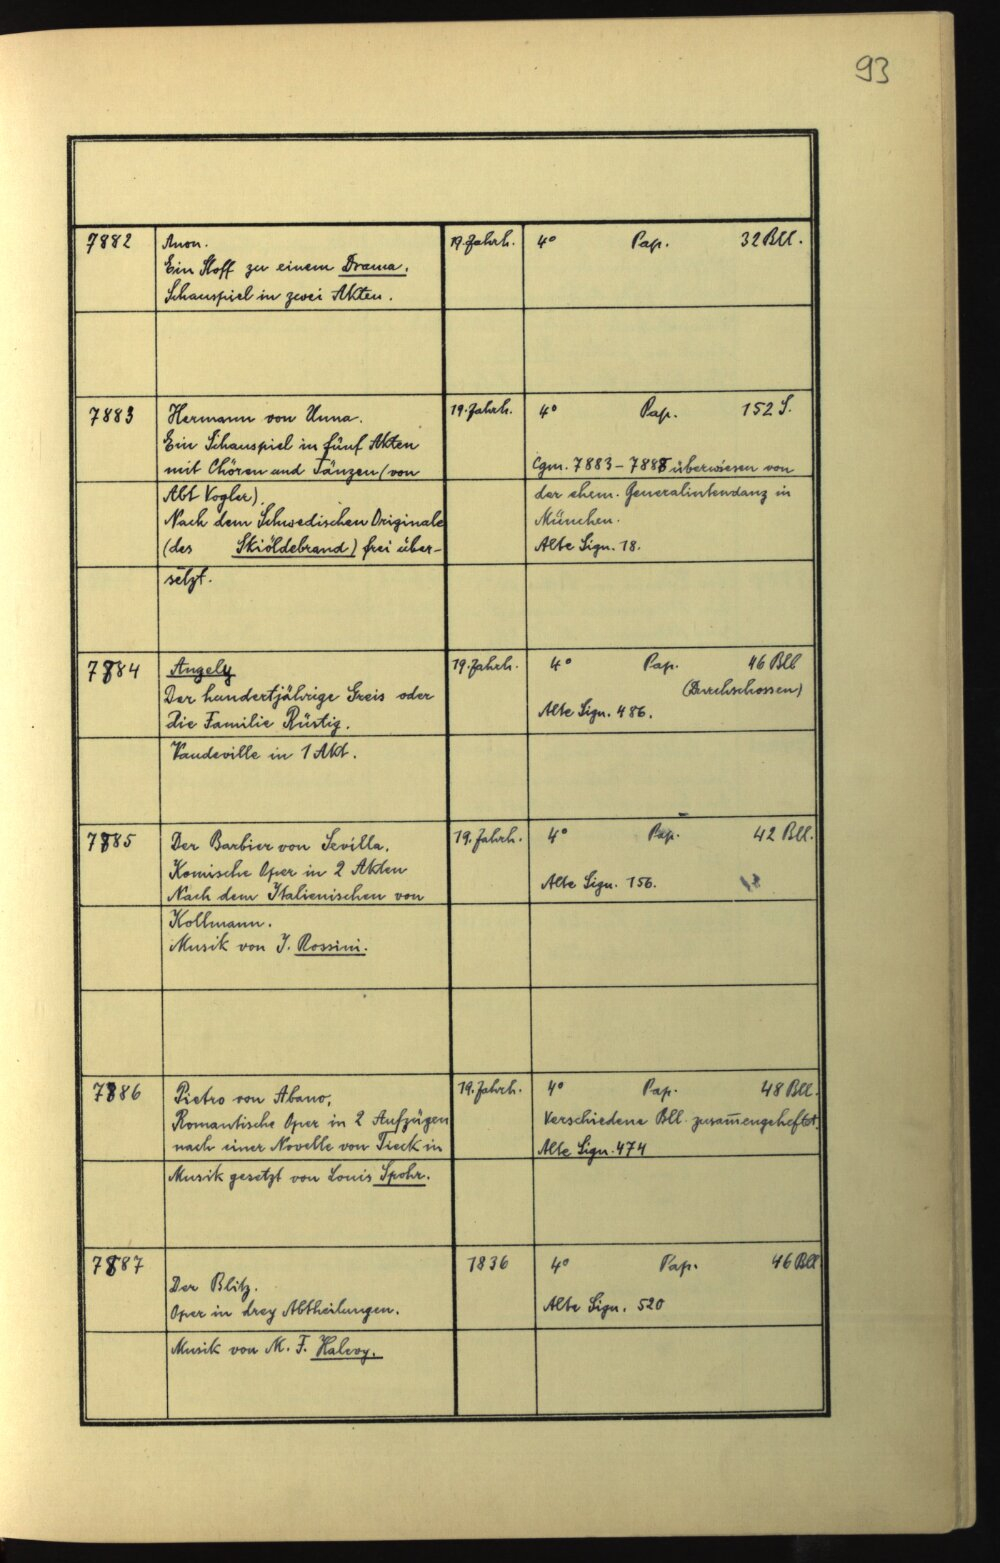 93
7882 Anon. 19. Jahrh. 4° Pap. 32 Bll.
Ein Stoff zu einem Drama.
Schauspiel in zwei Akten.
7883 Hermann von Unna. 19. Jahrh. 4° Pap. 152 S.
Ein Schauspiel in fünf Akten
mit Chören und Tänzen (von Cgm. 7883–7888 überwiesen von
Abt Vogler). der ehem. Generalintendanz in
Nach dem Schwedischen Originale München.
(des Skiöldebrand) frei über- Alte Sign. 18.
setzt.
7884 Angely 19. Jahrh. 4° Pap. 46 Bll
Der hundertjährige Greis oder (Durchschossen)
Die Familie Rüstig. Alte Sign. 486.
Vaudeville in 1 Akt.
7885 Der Barbier von Sevilla. 19. Jahrh. 4° Pap. 42 Bll.
Komische Oper in 2 Akten
Nach dem Italienischen von Alte Sign. 156.
Kollmann.
Musik von J. Rossini.
7886 Pietro von Abano. 19. Jahrh. 4° Pap. 48 Bll.
Romantische Oper in 2 Aufzügen Verschiedene Bll. zusam̅engeheftet.
nach einer Novelle von Tieck in Alte Sign. 474
Musik gesetzt von Louis Spohr.
7887 1836 4° Pap. 46 Bll
Der Blitz.
Oper in drey Abtheilungen. Alte Sign. 520
Musik von M. F. Halevy.